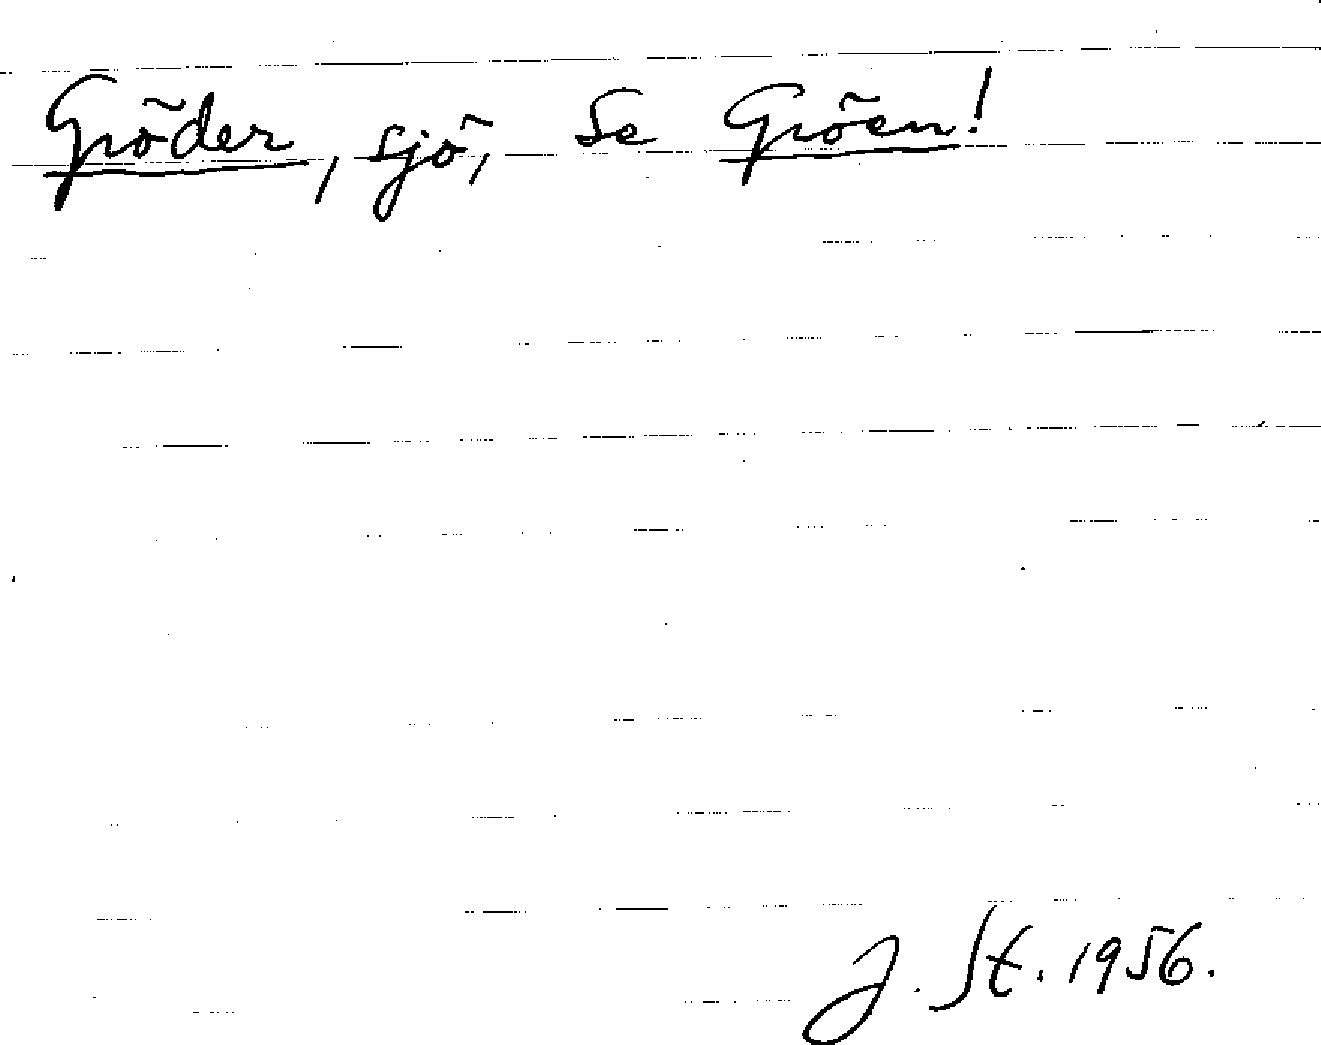 Gröder, sjö, se Gröen!
J. St. 1956.